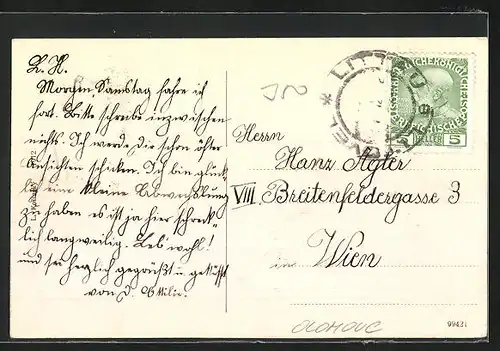 L. H.
Morgen, Samstag fahre ich
fort. Bitte schreibe inzwischen
nichts. Ich werde dir schon öfter
Ansichten schicken. Ich bin glück-
l. eine kleine Abwechslung
zu haben es ist ja hier schreck-
lich langweilig. Leb' wohl!
und sei herzlich gegrüßt u. geküsst
von d. Ottilie.
LITTAU
5
HELLER
Herrn
Hanz Agler
VIII Breitenfeldergasse 3
in Wien
OLOMOUC
99421